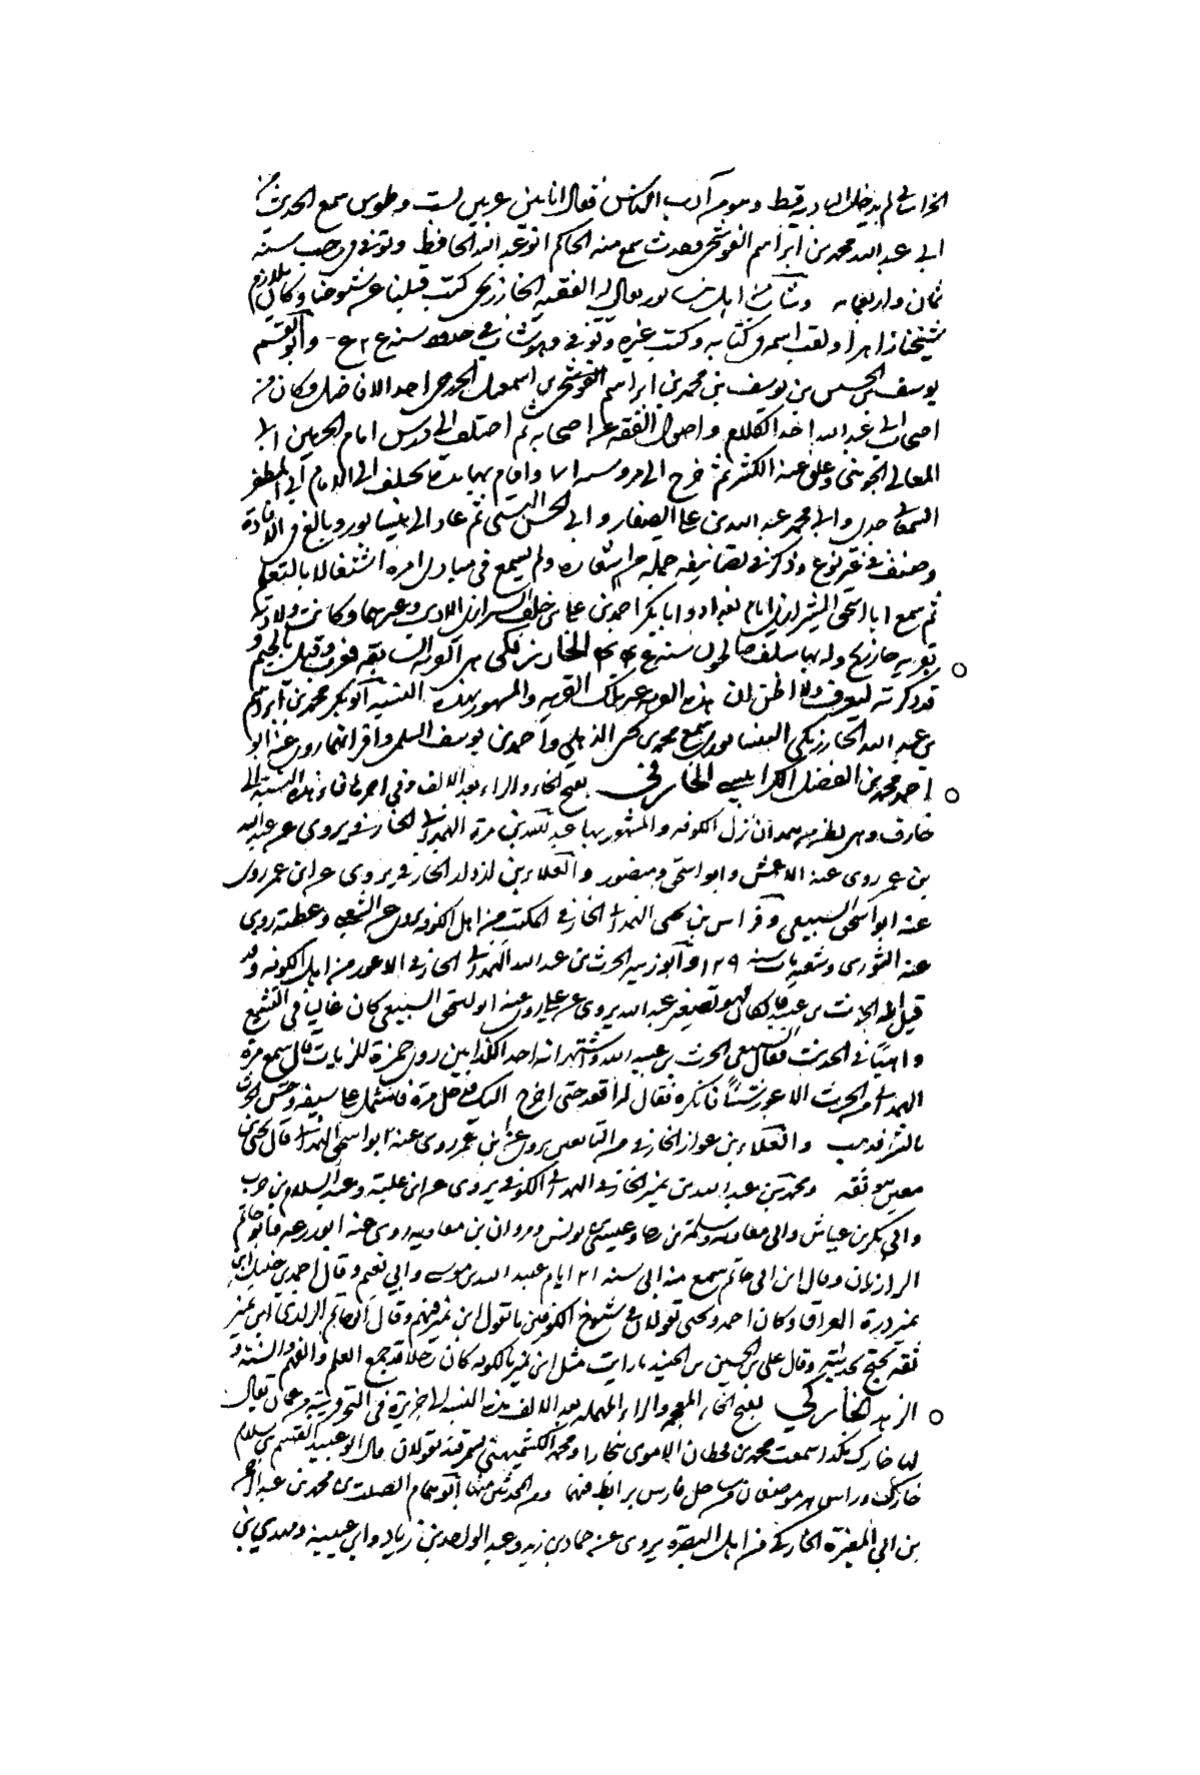 الخراساني لم يدخل البادية قط وهو من آدب الناس فقال انا بين عربين بست وطوس سمع الحديث من
ابي عبد الله محمد بن ابراهيم البوشنجي وحدث سمع منه الحاكم ابو عبد الله الحافظ وتوفي في رجب سنة
ثمان واربعمائة وشاب من اهل نيسابور يقال له الفقيه الخارزنجي كتب قبلنا عن شيوخنا وكان يلازم
شيخنا زاهرا ولقب اسمه في كتابه وكتب غيره وتوفي وهو شاب في حدود سنة وابو القسم
يوسف بن الحسن بن يوسف بن محمد بن ابراهيم بن اسمعيل الخارزنجي احد الافاضل وكان من
اصحاب ابي عبد الله اخذ الكلام واصول الفقه عن اصحابه ثم اختلف الى درس امام الحرمين ابي
المعالي الجويني وعلق عنه الكثير ثم خرج الى مرو واقام بها مدة يختلف الى الامام ابي المظفر
السمعاني جدي وابي محمد عبد الله بن علي الصفار وابي الحسن البستي ثم عاد الى نيسابور وبالغ في الافادة
وصنف في غير نوع وذكر في تصانيفه جملة من اشعاره ولم يسمع في مبادي امره اشتغالا بالتعلم
ثم سمع ابا اسحق الشيرازي امام بغداد وابا بكر احمد بن علي بن خلف الشيرازي الاديب وغيرهما وكانت ولادته
بقرية خارزنج ولد بها سنة الخارزنكي هي القرية السابقة فعرب وقيل بالجيم و
قد ذكرته ليعرف ولا يظن ان هذه القرية غير تلك القرية والمشهور بهذه النسبة ابو بكر محمد بن ابراهيم
بن عبد الله الخارزنكي النيسابوري سمع محمد بن يحيى الذهلي واحمد بن يوسف السلمي واقرانهما روى عنه ابو
احمد محمد بن الفضل الكرابيسي الخارفي بفتح الخاء والراء بعد الالف وفي اخرها فاء هذه النسبة الى
خارف وهو بطن من همدان نزل الكوفة والمشهور بها عبد الله بن مرة الهمداني الخارفي يروي عن عبد الله
بن عمر روى عنه الاعمش وابو اسحق ومنصور والعلاء بن الخارفي يروي عن ابن عمر روى
عنه ابو اسحق السبيعي وفراس بن يحيى الهمداني الخارفي المكتب من اهل الكوفة يروي عن الشعبي وعطية روى
عنه الثوري وشعبة مات سنة ١٢٩ وابو زهير الحرث بن عبد الله الهمداني الخارفي الاعور من اهل الكوفة وقد
قيل انه الحارث بن عبيد فان كان فهو تصغير عبد الله يروي عن علي روى عنه ابو اسحق السبيعي كان غاليا في التشيع
واهيا في الحديث فقال الشعبي الحرث بن عبيد الله واشهد انه احد الكذابين روى حمزة الزيات قال سمع مرة
الهمداني من الحرث الاعور شيئا فانكره فقال له اقعد حتى اخرج اليك فدخل مرة فاشتمل على سيفه وحس الحرث
بالشر فذهب والعلاء بن عرار الخارفي من التابعين يروي عن ابن عمر روى عنه ابو اسحق الهمداني قال يحيى بن
معين هو ثقة ومحمد بن عبد الله بن نمير الخارفي الهمداني الكوفي يروي عن ابن علية وعبد السلام بن حرب
وابي بكر بن عياش وابي معاوية وسلمة بن رجا وعيسى بن يونس ومروان بن معاوية روى عنه ابو زرعة وابو حاتم
الرازيان وقال ابن ابي حاتم سمع منه ابي سنة ايام عبيد الله بن موسى وابي نعيم وقال احمد بن حنبل ابن
نمير درة العراق وكان احمد ويحيى يقولان في شيوخ الكوفيين ما يقول ابن نمير فيهم وقال ابو حاتم الرازي ابن نمير
ثقة يحتج بحديثه وقال علي بن الحسين بن الجنيد ما رايت مثل ابن نمير بالكوفة كان رجلا قد جمع العلم والفهم والسنة و
الزهد الخاركي بفتح الخاء المعجمة والراء المهملة بعد الالف هذه النسبة الى جزيرة في البحر قريبة من عمان يقال
لها خارك هكذا سمعت محمد بن قحطان الاموي ببخارا ومحمد الكشميهني بسمرقند يقولان قال ابو عبيد القسم بن سلام
خارك وراس هر موضعان من ساحل فارس يرابط فيهما ومن المحدثين منها ابو همام الصلت بن محمد بن عبد الرحمن
بن ابي المغيرة الخاركي من اهل البصرة يروي عن حماد بن زيد وعبد الواحد بن زياد وابن عيينة ومهدي بن